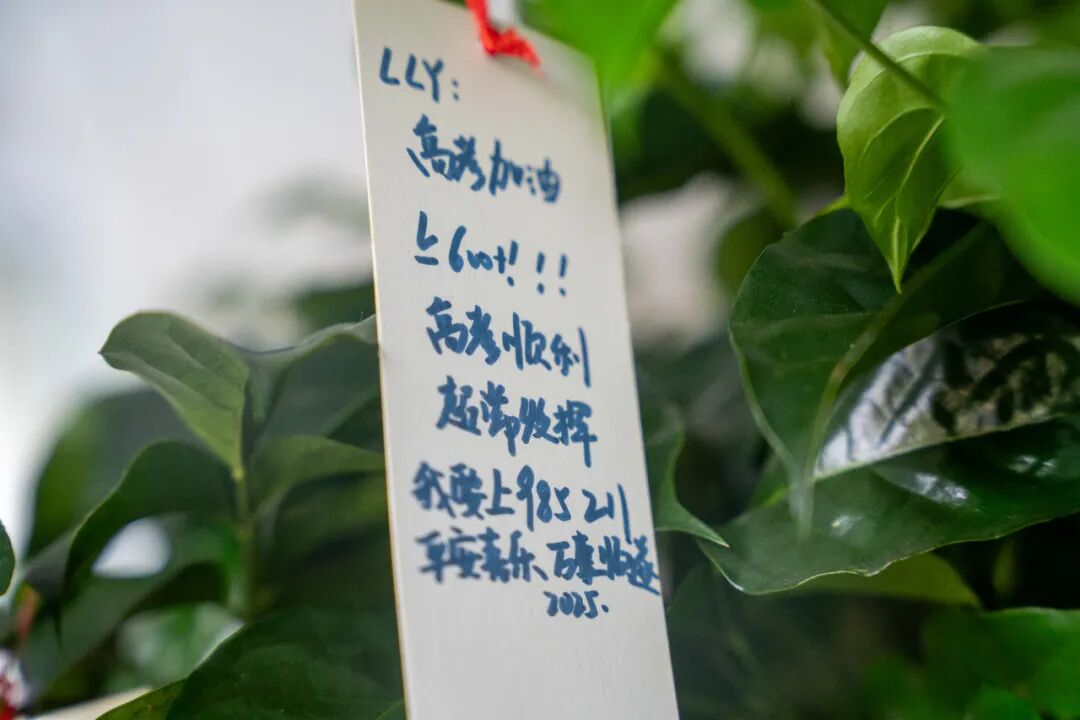 LLY:
高考加油
≥600+!!!
高考顺利
超常发挥
我要上985 211
平安喜乐、万事顺遂
2025.